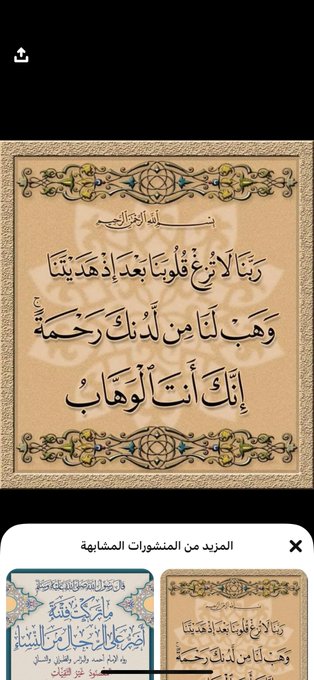 بسم الله الرحمن الرحيم
رَبَّنَا لَا تُزِغْ قُلُوبَنَا بَعْدَ إِذْ هَدَيْتَنَا
وَهَبْ لَنَا مِن لَّدُنكَ رَحْمَةً ۚ
إِنَّكَ أَنتَ ٱلْوَهَّابُ
المزيد من المنشورات المشابهة
قال رسول الله صلى الله عليه وسلم
ما تركت فتنة
أضر على الرجال من النساء
رواه الإمام أحمد والبزار والطبراني والنسائي
بسم الله الرحمن الرحيم
رَبَّنَا لَا تُزِغْ قُلُوبَنَا بَعْدَ إِذْ هَدَيْتَنَا
وَهَبْ لَنَا مِن لَّدُنكَ رَحْمَةً